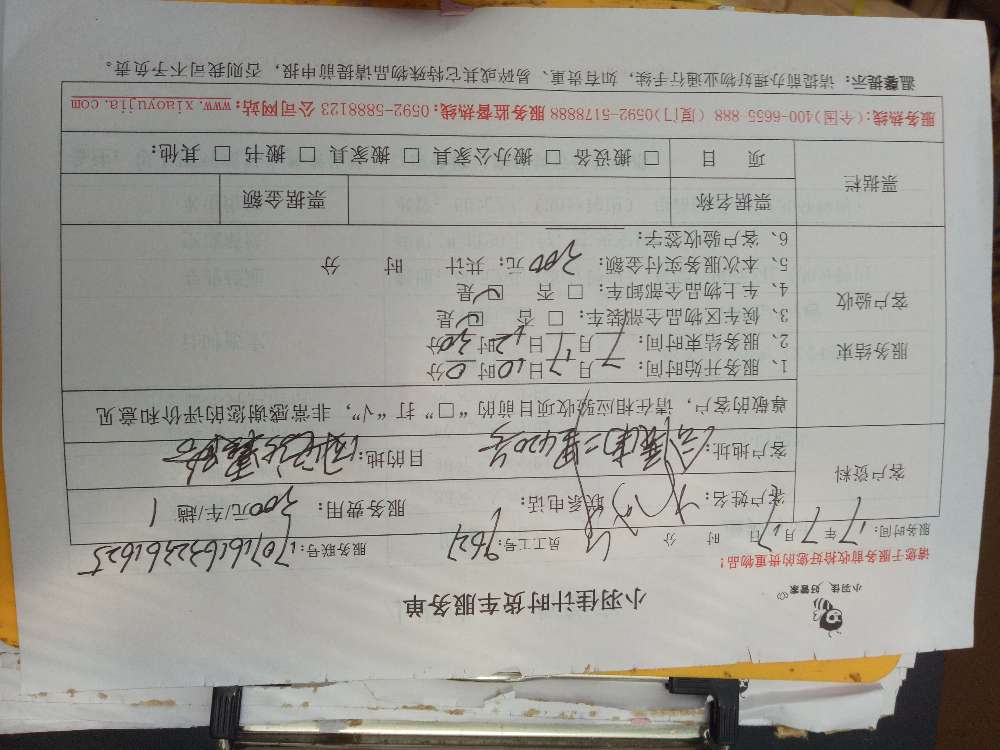 小羽佳 好管家
小羽佳计时货车服务单
请您于服务前收拾好您的贵重物品！
服务时间：17年7月17日 时 分 员工工号：9627 服务联号：
客户资料
客户姓名： 联系电话： 服务费用：200元/车/趟 1
客户地址： 420号 目的地：
尊敬的客户，请在相应验收项目前的“□”打“√”，非常感谢您的评价和意见
服务结束
客户验收
1、服务开始时间：7月17日10时0分
2、服务结束时间：7月17日12时30分
3、候车区物品全部装车：□ 否 ☑ 是
4、车上物品全部卸车：□ 否 ☑ 是
5、本次服务实付金额：200元；共计 时 分
6、客户验收签字：
票据栏
票据名称 票据金额
项 目 □ 搬设备 □ 搬办公家具 □ 搬家具 □ 搬书 □ 其他：
服务热线：(全国)400-6655-888 (厦门)0592-5178888 服务监督热线：0592-5888123 公司网站：www.xiaoyujia.com
温馨提示：请提前办理好物业通行手续，如有贵重、易碎或其它特殊物品请提前申报，否则我司不予负责。